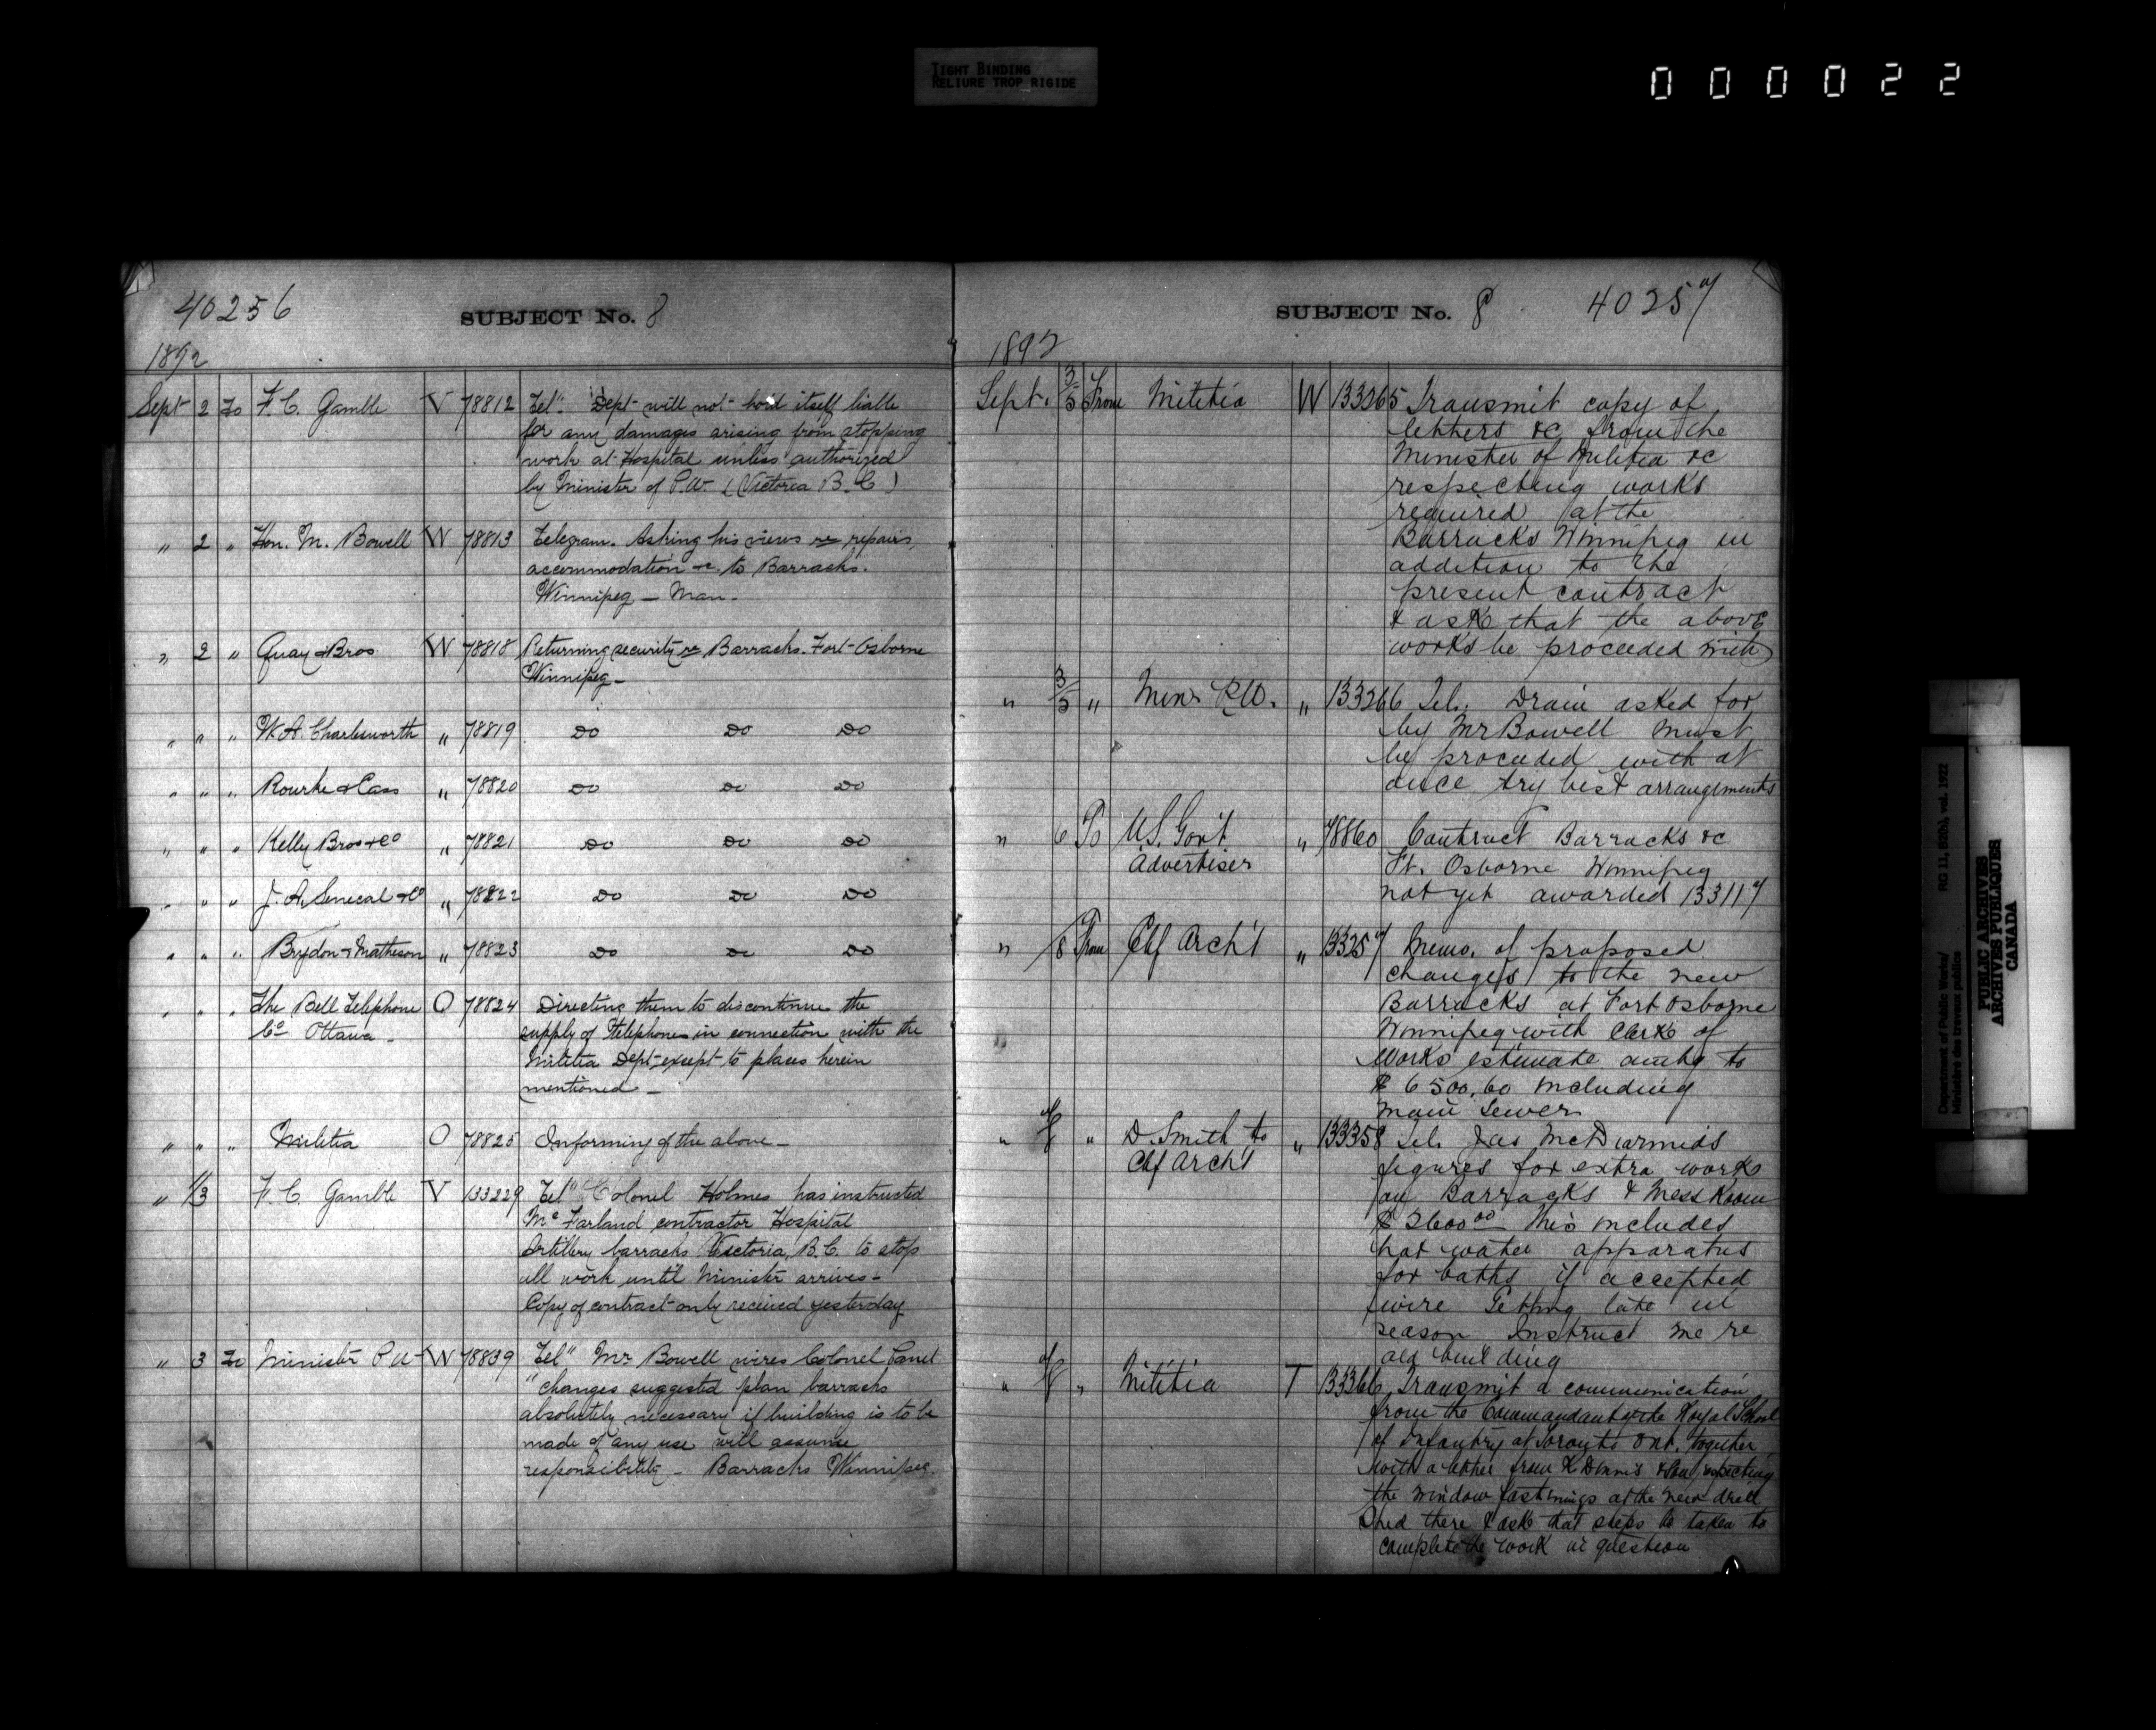 TIGHT BINDING
RELIURE TROP RIGIDE
000022
40256
SUBJECT No. 8
1892
Sept 2 To F. C. Gamble V 78812 Tel". Dept will not hold itself liable
for any damages arising from stopping
work at Hospital unless authorized
by Minister of P.W. (Victoria B.C)
" 2 " Hon. M. Bowell W 78813 Telegram. Asking his views re repairs,
accommodation &c. to Barracks.
Winnipeg - Man.
" 2 " Guay & Bros W 78818 Returning security re Barracks. Fort-Osborne
Winnipeg -
" " " W. A. Charlesworth " 78819 Do Do Do
" " " Rourke & Cass " 78820 Do Do Do
" " " Kelly Bros & Co " 78821 Do Do Do
" " " J. A. Senecal & Co " 78822 Do Do Do
" " " Brydon & Matheson " 78823 Do Do Do
" " " The Bell Telephone O 78824 Directing them to discontinue the
Co Ottawa - supply of Telephones in connection with the
Militia Dept. except to places herein
mentioned -
" " " Militia O 78825 Informing of the above -
" 1/3 F. C. Gamble V 133229 Tel" Colonel Holmes has instructed
Mc Farland contractor Hospital
Artillery barracks Victoria, B.C. to stop
all work until Minister arrives -
Copy of contract only received yesterday
" 3 To Minister P W W 78839 Tel" Mr Bowell wires Colonel Panet
"changes suggested plan barracks
absolutely necessary if building is to be
made of any use will assume
responsibility - Barracks Winnipeg.
SUBJECT No. 8 40257
1892
Sept. 3/5 From Militia W 133265 Transmit copy of
letters &c from the
Minister of Militia &c
respecting works
required at the
Barracks Winnipeg in
addition to the
present contract
& ask that the above
works be proceeded with
" 3/5 " Minr P.W. " 133266 Tel. Drain asked for
by Mr Bowell must
be proceeded with at
once try best arrangements
" 6 To U.S. Gov't " 78860 Contract Barracks &c
Advertiser Ft. Osborne Winnipeg
not yet awarded 133117
" /8 From Chf Arch't " 133257 Memo. of proposed
changes to the new
Barracks at Fort Osborne
Winnipeg with Clerk of
Works estimate amtg to
$ 6500.60 including
main sewer
" " D. Smith to " 133358 Tel. Jas McDiarmids
Chf Archt figures for extra work
on Barracks & Mess Room
$ 2600 00 this includes
hot water apparatus
for baths if accepted
wire Getting late in
season Instruct me re
old building
" " Militia T 133366 Transmit a communication
from the Commandant of the Royal School
of Infantry at Toronto Ont. together
with a letter from K Dennis & Son respecting
the window fastenings at the new drill
Shed there & ask that steps be taken to
complete the work in question
Department of Public Works/
Ministère des travaux publics
RG 11, B2(b), vol. 1922
PUBLIC ARCHIVES
ARCHIVES PUBLIQUES
CANADA